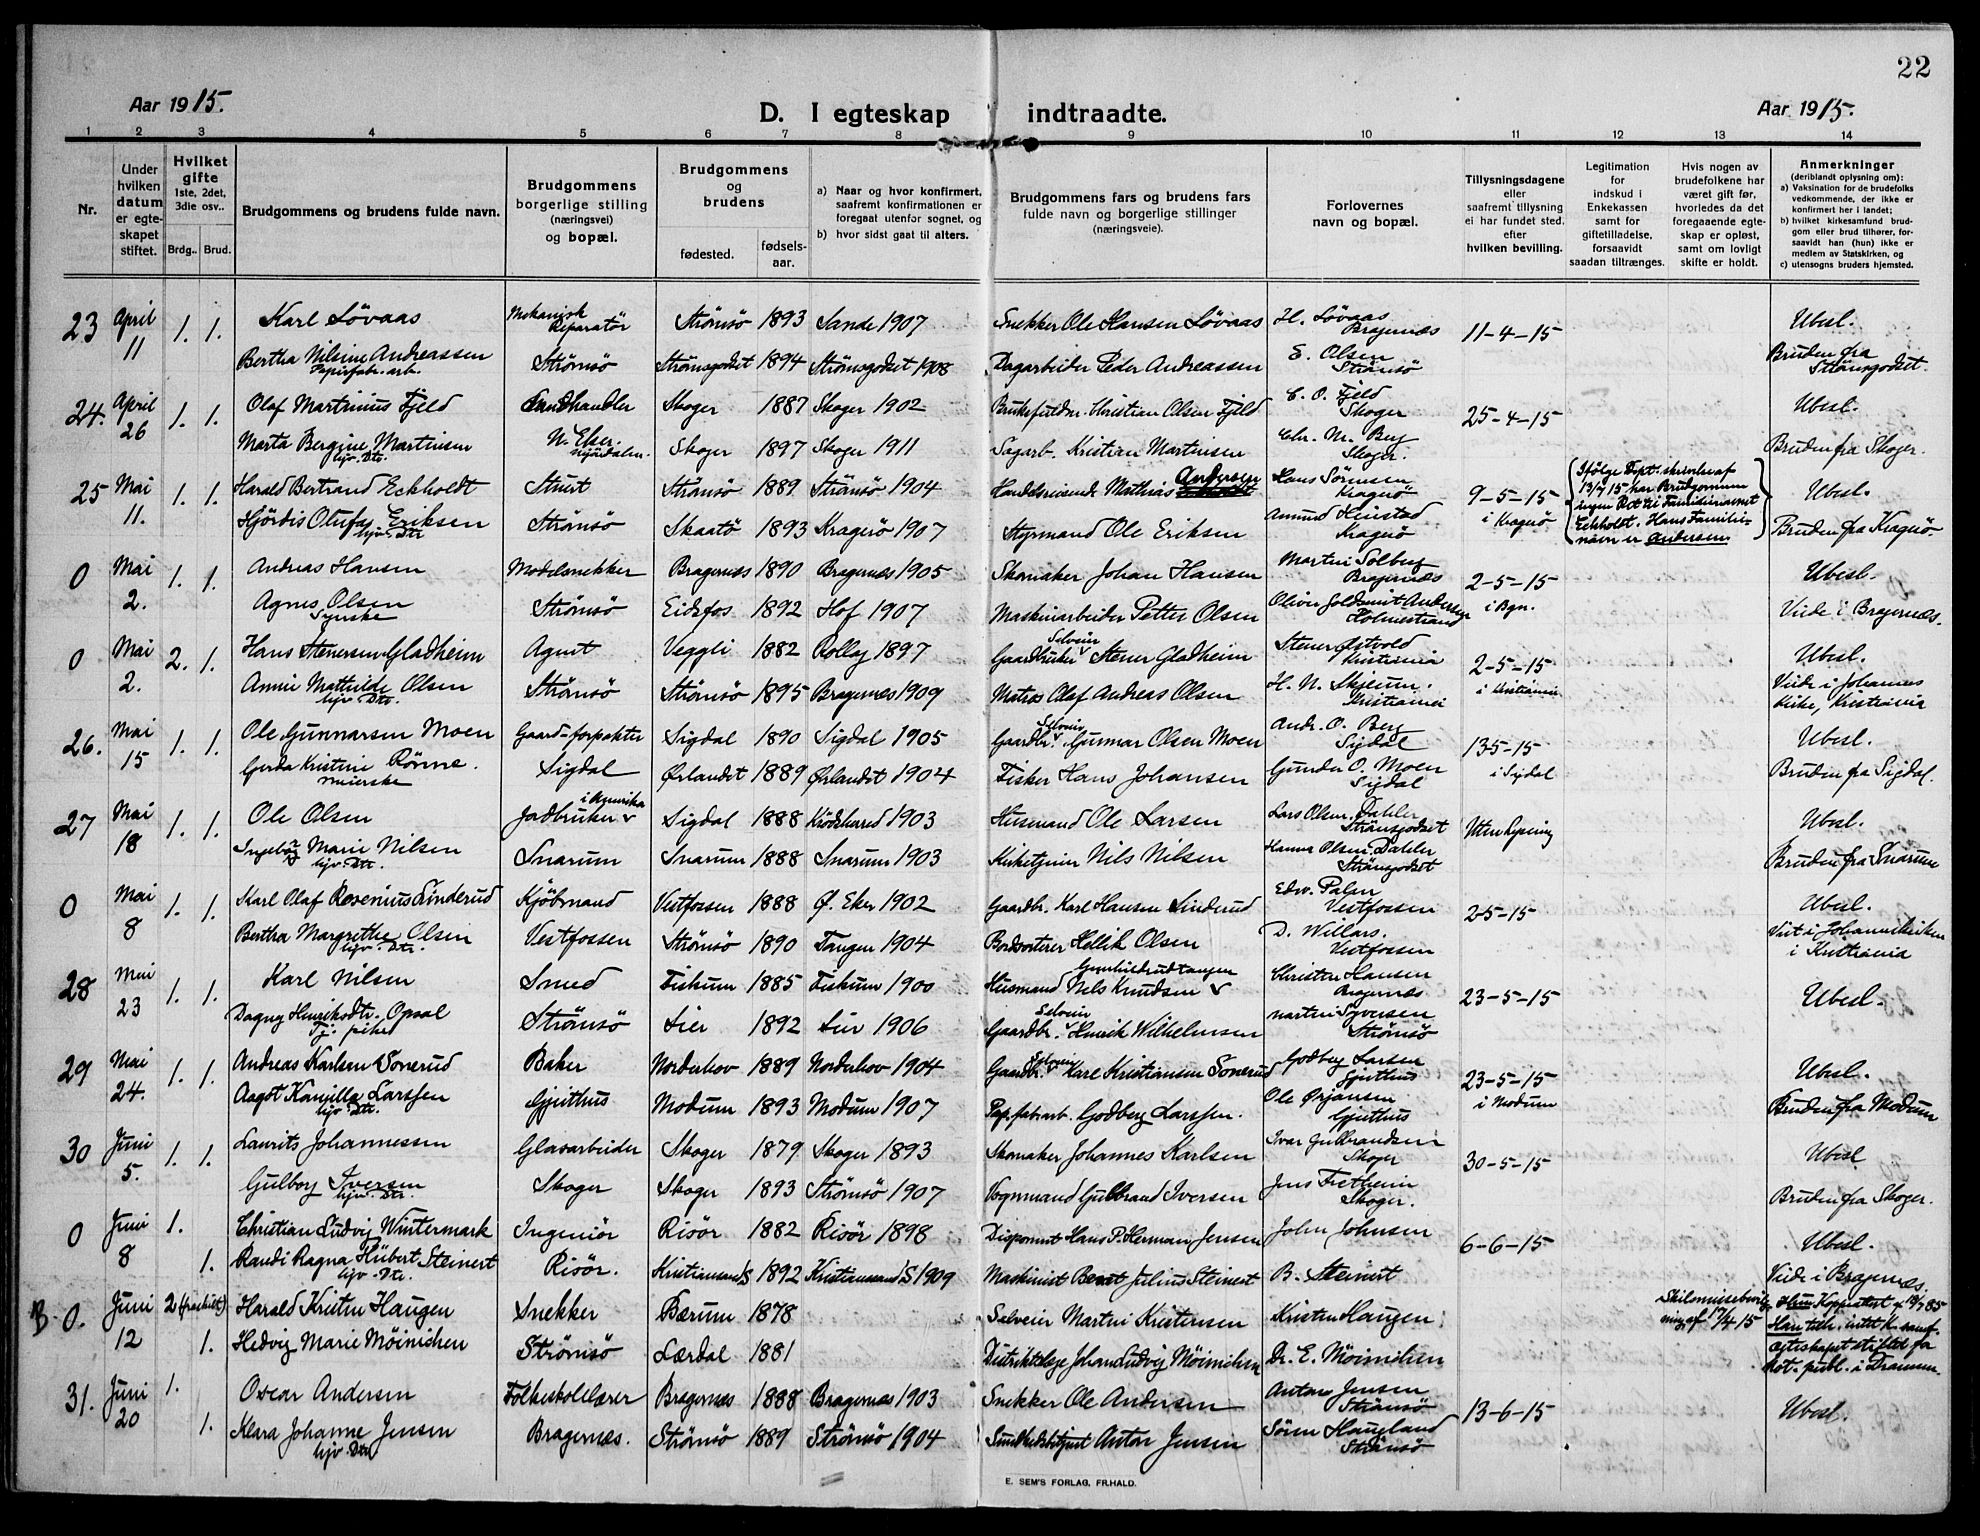 22
Aar 1915.
D. I egteskap indtraadte.
Aar 1915.
1 2 3 4 5 6 7 8 9 10 11 12 13 14
Nr.
Under hvilken datum er egteskapet stiftet.
Hvilket gifte
1ste, 2det, 3die osv..
Brdg.. Brud.
Brudgommens og brudens fulde navn.
Brudgommens borgerlige stilling (næringsvei) og bopæl.
Brudgommens og brudens
fødested. fødselsaar.
a) Naar og hvor konfirmert, saafremt konfirmationen er foregaat utenfor sognet, og
b) hvor sidst gaat til alters.
Brudgommens fars og brudens fars fulde navn og borgerlige stillinger (næringsveie).
Forlovernes navn og bopæl.
Tillysningsdagene eller saafremt tillysning ei har fundet sted. efter hvilken bevilling.
Legitimation for indskud i Enkekassen samt for giftetilladelse, forsaavidt saadan tiltrænges.
Hvis nogen av brudefolkene har været gift før, hvorledes da det foregaaende egteskap er opløst, samt om lovligt skifte er holdt.
Anmerkninger (deriblandt oplysning om):
a) Vaksination for de brudefolks vedkommende, der ikke er konfirmert her i landet;
b) hvilket kirkesamfund brudgom eller brud tilhører, forsaavidt han (hun) ikke er medlem av Statskirken, og
c) utensogns bruders hjemsted.
23 April 11 1. 1. Karl Løvaas Mekanisk Reparatør Strømsö 1893 Sande 1907 Snekker Ole Hansen Løvaas H. Løvaas Bragernæs 11-4-15 Ubesl.
Bertha Nilsine Andreassen Papirfabr. arb. Strømsö Strømsgodset 1894 Strømsgodset 1908 Dagarbeider Peder Andreassen E. Olsen Strømsö Bruden fra Strømsgodset.
24. April 26 1. 1. Olaf Martinius Fjeld Landhandler Skoger 1887 Skoger 1902 Christian Olsen Fjeld C. O. Fjeld Skoger 25-4-15 Ubesl.
Marta Bergine Martinsen hjv. Dtr. N. Eker. Mjöndalen. Skoger 1897 Skoger 1911 Sagarb. Kristian Martinsen Chr. M. Berg Skoger. Bruden fra Skoger.
25 Mai 11. 1. 1. Harald Bertrand Eckholdt Stuert Strømsö 1889 Strømsö 1904 Handelsreisende Mathias Andersen Hans Sörensen Kragerö 9-5-15 i Kragerö Ifølge Dpt. skrivelse af 13/7 15 har Brudgommen ingen Ret til Familienavnet Eckholdt. Hans Familienavn er Andersen Ubesl.
Hjördis Olufa Eriksen hjv. Dtr Strømsö Skaatö 1893 Kragerö 1907 Styrmand Ole Eriksen Amund Heistad Kragerö Bruden fra Kragerö.
0 Mai 2. 1. 1. Andreas Hansen Modelsnekker Bragernæs 1890 Bragernæs 1905 Skomaker Johan Hansen Martin Solberg Bragernæs 2-5-15 i Bgn. Ubesl.
Agnes Olsen Syerske Strømsö Eidsfos 1892 Hof 1907 Maskinarbeider Petter Olsen Oliver Goldsmit Andersen Holmestrand Viede i Bragernæs.
0 Mai 2. 2. 1. Hans Stenersen Gladheim Agent Veggli 1882 Rollag 1897 Gaardbruker Selveier Stener Gladheim Stener Østvold Kristiania 2-5-15 i Kristiania Ubesl.
Annie Mathilde Olsen hjv. Dtr. Strømsö Strømsö 1895 Bragernæs 1909 Matros Olaf Andreas Olsen H. N. Skjeum. Kristiania Viede i Johannes Kirke, Kristiania
26. Mai 15 1. 1. Ole Gunnarsen Moen Gaard-forpakter Sigdal 1890 Sigdal 1905 Gaardbr. Selveier Gunnar Olsen Moen Andr. O. Berg Sigdal 13-5-15 i Sigdal Ubesl.
Gerda Kristine Rönne. Meierske Sigdal Ørlandet 1889 Ørlandet 1904 Fisker Hans Johansen Gunder O. Moen Sigdal Bruden fra Sigdal.
27 Mai 18 1. 1. Ole Olsen Jordbruker i Amerika Sigdal 1888 Krödsherred 1903 Husmand Ole Larsen Lars Olsen Dahler Strømsgodset Uten lysning Ubesl.
Ingeborg Marie Nilsen hjv. Dtr. Snarum Snarum 1888 Snarum 1903 Kirketjener Nils Nilsen Hanna Olsen Dahler Strømsgodset Bruden fra Snarum
0 Mai 8 1. 1. Karl Olaf Rosenius Linderud Kjöbmand Vestfossen 1888 Ø. Eker 1902 Gaardbr. Karl Hansen Linderud Edv. Palm Vestfossen 2-5-15 Ubesl.
Bertha Margrethe Olsen hjv. Dtr. Vestfossen Strømsö 1890 Tangen 1904 Bordsorterer Hellik Olsen D. Willars. Vestfossen Viet i Johanneskirken i Kristiania
28 Mai 23 1. 1. Karl Nilsen Smed Fiskum 1885 Fiskum 1900 Husmand Nels Knudsen Gunhildrudtangen Christen Hansen Bragernæs 23-5-15 Ubesl.
Dagny Henriksdtr. Opsal Tj. pike Strømsö Lier 1892 Lier 1906 Gaardbr. Selveier Henrik Wilhelmsen Martin Syversen Strømsö
29 Mai 24. 1. 1. Andreas Karlsen Sonerud Baker Norderhov 1889 Norderhov 1904 Gaardbr. Selveier Karl Kristiansen Sonerud Godberg Larsen Gjeithus 23-5-15 i Modum Ubesl.
Aagot Kamilla Larssen hjv. Dtr. Gjeithus Modum 1893 Modum 1907 Papfabarb. Godberg Larssen. Ole Ørjansen Gjeithus Bruden fra Modum
30 Juni 5. 1. 1. Laurits Johannessen Glasarbeider Skoger 1879 Skoger 1893 Skomaker Johannes Karlsen Ivar Gulbrandsen Skoger 30-5-15 Ubesl
Gulborg Iversen hjv. Dtr. Skoger Skoger 1893 Strømsö 1907 Vognmand Gulbrand Iversen Jens Fretheim Skoger. Bruden fra Skoger.
0 Juni 8 1. Christian Ludvig Wintermark Ingeniör Risör 1882 Risör 1898 Disponent Hans P. Herman Jensen John Johnsen 6-6-15 Ubesl.
1. Randi Ragna Hübert Steinert hjv. Dtr. Risör. Kristiansand S 1892 Kristiansand S 1909 Maskinist Bernt Julius Steinert B. Steinert Viede i Bragernæs
B. 0. Juni 12 2 (fraskilt) Harald Kristen Haugen Snekker Bærum 1878 Selveier Martin Kristensen Kristen Haugen Skilsmissebevilgning af 17/4 15 Hun Koppeattest af 18/7 85
1. Hedvig Marie Möinichen Strømsö Lærdal 1881 Distriktslæge Johan Ludvig Möinichen Dr. E. Möinichen Han tilh. intet K. samf. Egteskapet stiftet fra Not. publ. i Drammen.
31. Juni 20 1. Oscar Andersen Folkeskolelærer Bragernæs 1888 Bragernæs 1903 Snekker Ole Andersen Anton Jensen Strømsö 13-6-15 Ubesl.
1. Klara Johanne Jensen hjv. Dtr Bragernæs. Strømsö 1889 Strømsö 1904 Sundhedsbetjent Anton Jensen Sören Haugland Strømsö
E. SEM'S FORLAG, FR.HALD.